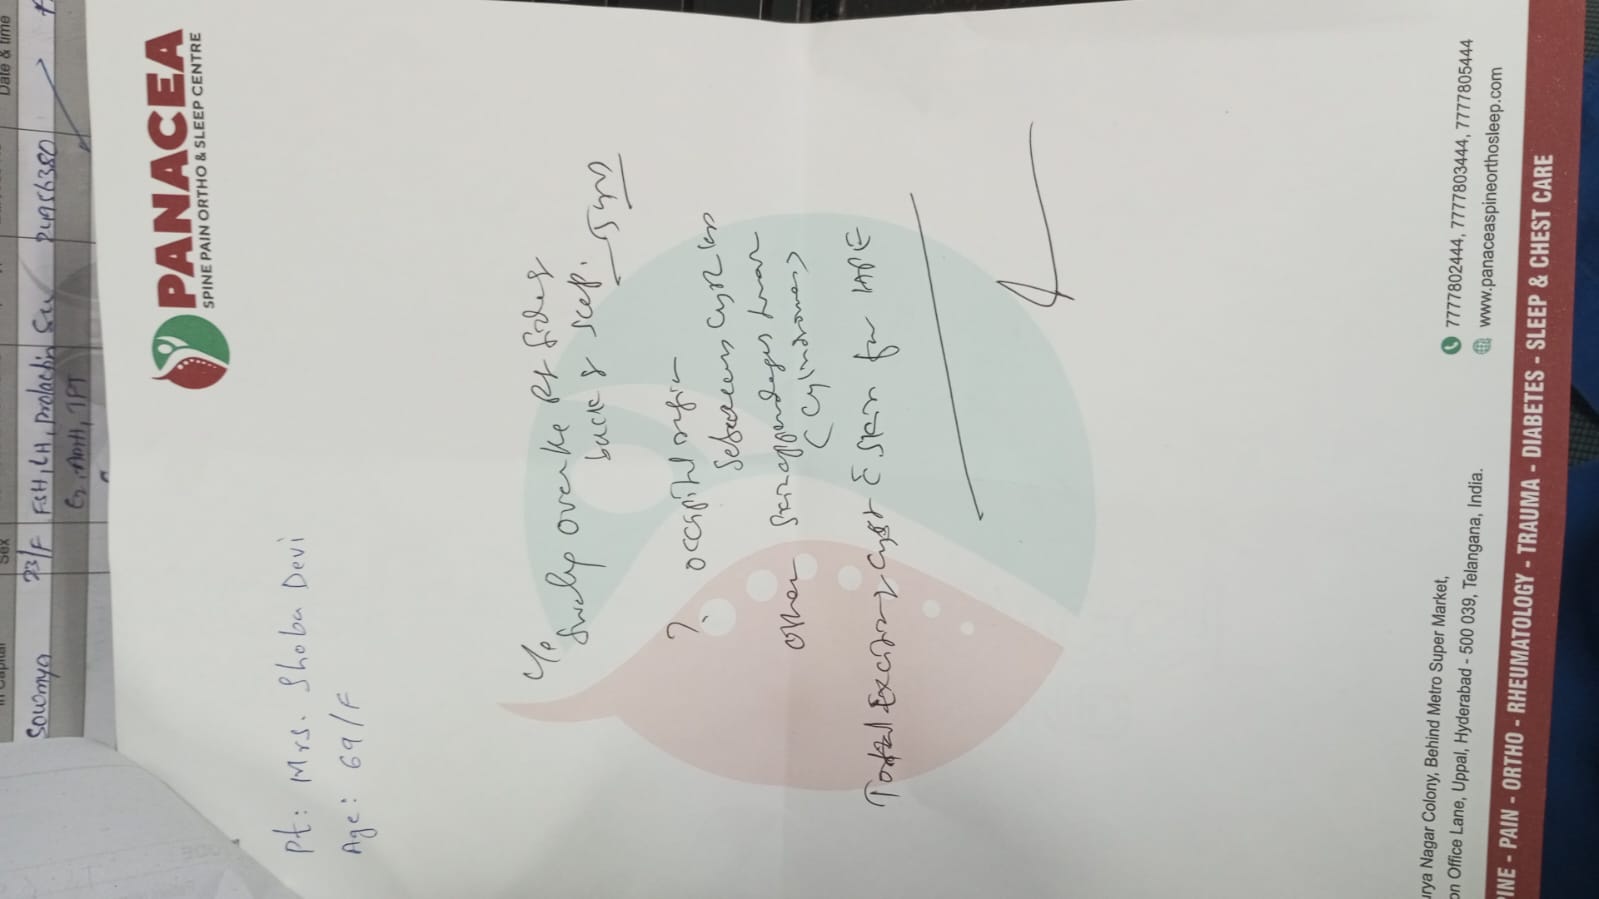 PANACEA
SPINE PAIN ORTHO & SLEEP CENTRE
Pt: Mrs. Shoba Devi
Age: 69/F
C/o Swelling over the Rt side of
back of scalp.
? occipital region
Sebaceous cyst
other skin appendages tumor
(Cylindromas)
Total Excision of cyst c̄ skin for HPE
urya Nagar Colony, Behind Metro Super Market,
on Office Lane, Uppal, Hyderabad - 500 039, Telangana, India.
7777802444, 7777803444, 7777805444
www.panaceaspineorthosleep.com
INE - PAIN - ORTHO - RHEUMATOLOGY - TRAUMA - DIABETES - SLEEP & CHEST CARE
Date & time
Sex
Sowmya 23/F FSH, LH, prolactin